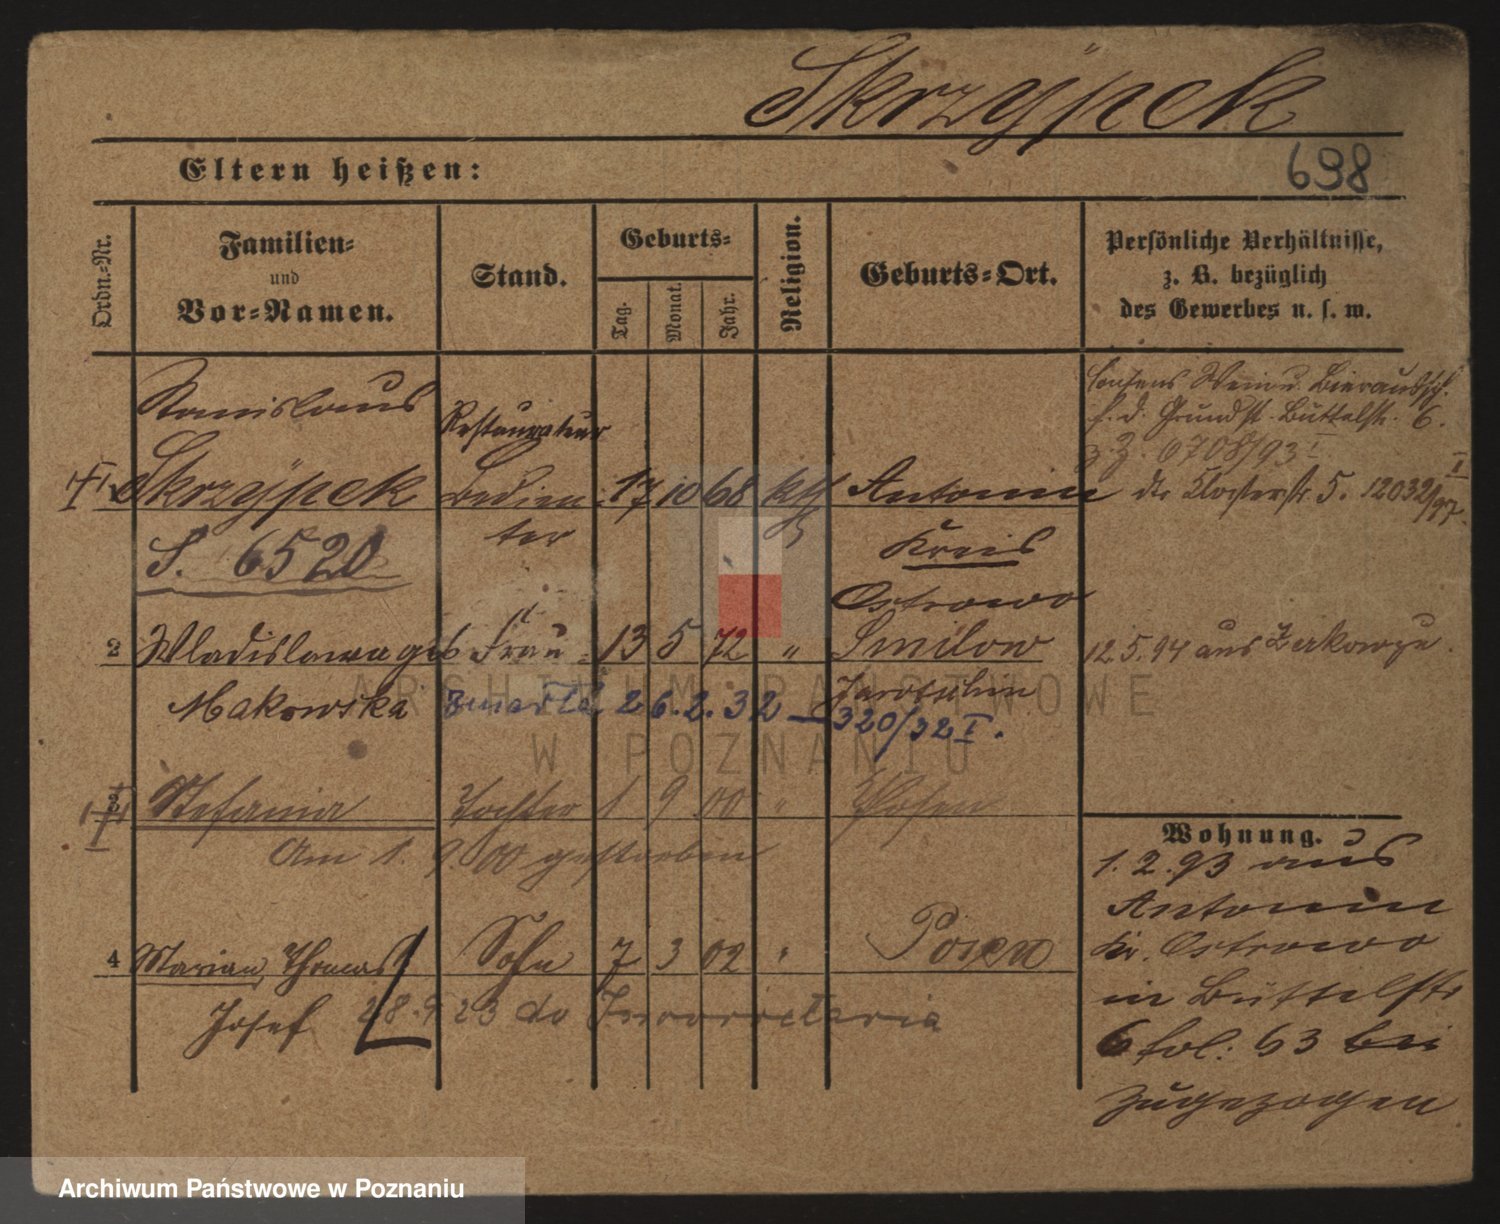 Skrzÿpek
Eltern heißen:
698
Ordn.=Nr.
Familien=
und
Vor=Namen.
Stand.
Geburts=
Tag.
Monat.
Jahr.
Religion.
Geburts=Ort.
Persönliche Verhältnisse,
z. B. bezüglich
des Gewerbes u. s. w.
Stanislaus
Skrzÿpek
S. 6520
Restaurateur
Bedien=
ter
17 10 68 kth
Antonin
Kreis
Ostrowo
Consens Wein u. Bierausch.
f. d. Grundst. Büttelstr. 6.
6708/93 I
dto Klosterstr. 5. 12032/97. I
2 Wladislawa geb Frau 13 5 72 " Smilow
Makowska
Jarotschin
zmarła 26.2.32 – 320/32 I.
12.5.94 aus Zerkow zu.
3 Stefania Tochter 1 9 00 " Posen
Am 1. 9. 00 gestorben
4 Marian, Thomas Sohn 7 3 02 " Posen
Josef
28.9.23 do Inowrocławia
Wohnung.
1.2.93 aus
Antonin
Kr. Ostrowo
in Büttelstr
6 fol: 63 bei
zugezogen
ARCHIWUM PAŃSTWOWE
W POZNANIU
Archiwum Państwowe w Poznaniu